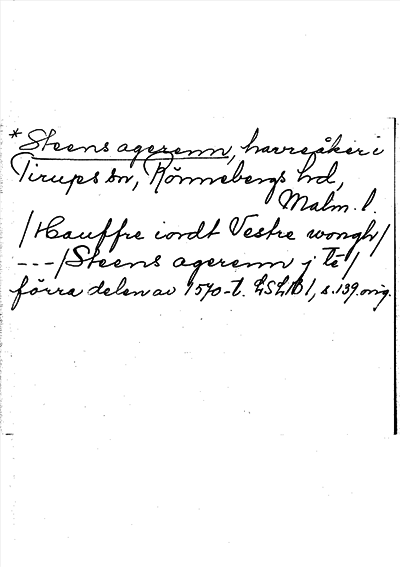 *Steens agerenn, havreåker i
Tirups sn, Rönnebergs hd,
Malm. l.
/Hauffre iordt Vestre wongh/
---/Steens agerenn j te/
förra delen av 1570-t. LSLIB1, s. 139. orig.